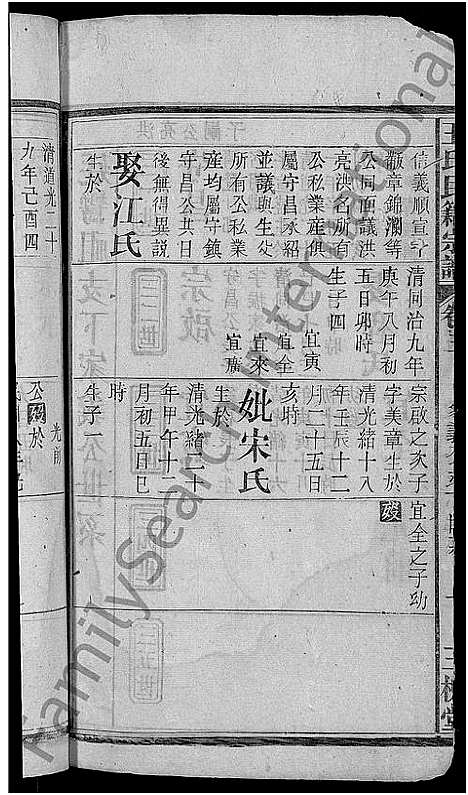 信義順宣字
徽章錦瀾等
公同面議洪
亮洪名所有
公私業產俱
屬守昌承紹
並議與生父
所有公私業
產均屬守鎮
守昌公共日
後無得異說
娶江氏
生於
清同治九年
庚午八月初
五日卯時
生子四
宜寅
宜全
宜來
宜廣
宗啟之次子
字美章生於
清光緒十八
年壬辰十二
月二十五日
亥時
妣宋氏
生於
清光緒二十
年甲午十二
月初五日巳
時
生子一
宜全之子幼
殁
清道光二十
九年己酉四
公殁於
光前
三槐堂
FamilySearch International